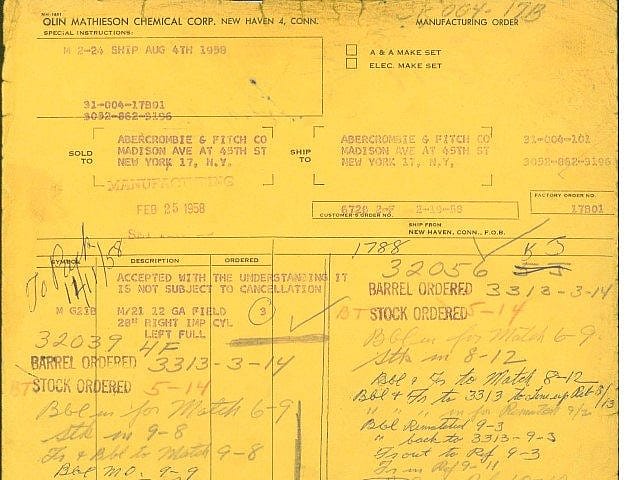 NH-1681
OLIN MATHIESON CHEMICAL CORP. NEW HAVEN 4, CONN.
MANUFACTURING ORDER
SPECIAL INSTRUCTIONS:
M 2-24 SHIP AUG 4TH 1958
A & A MAKE SET
ELEC. MAKE SET
31-004-17B01
3052-862-3196
SOLD TO
ABERCROMBIE & FITCH CO
MADISON AVE AT 45TH ST
NEW YORK 17, N.Y.
SHIP TO
ABERCROMBIE & FITCH CO
MADISON AVE AT 45TH ST
NEW YORK 17, N.Y.
31-004-101
3052-862-3196
MANUFACTURING
FEB 25 1958
6728 2-F 2-19-58
CUSTOMER'S ORDER NO.
FACTORY ORDER NO.
17B01
SHIP FROM
NEW HAVEN, CONN., F.O.B.
1788
To
11/1/58
SYMBOL
DESCRIPTION
ORDERED
ACCEPTED WITH THE UNDERSTANDING IT
IS NOT SUBJECT TO CANCELLATION
M G21B M/21 12 GA FIELD 3
28" RIGHT IMP CYL
LEFT FULL
32039 4F
BARREL ORDERED 3313-3-14
BT STOCK ORDERED 5-14
Bbl in for Match 6-9
Stk in 9-8
Fs & Bbl to Match 9-8
Bbl MO. 9-9
32056
BARREL ORDERED 3313-3-14
BT STOCK ORDERED 5-14
Bbl in for Match 6-9
Stk in 8-12
Bbl & Fs to Match 8-12
Bbl & Fs to 3313 to
" " " in for
Bbl 9-3
" back to 3313-9-3
Fs out to Rf 9-3
Fs in Rf 9-11